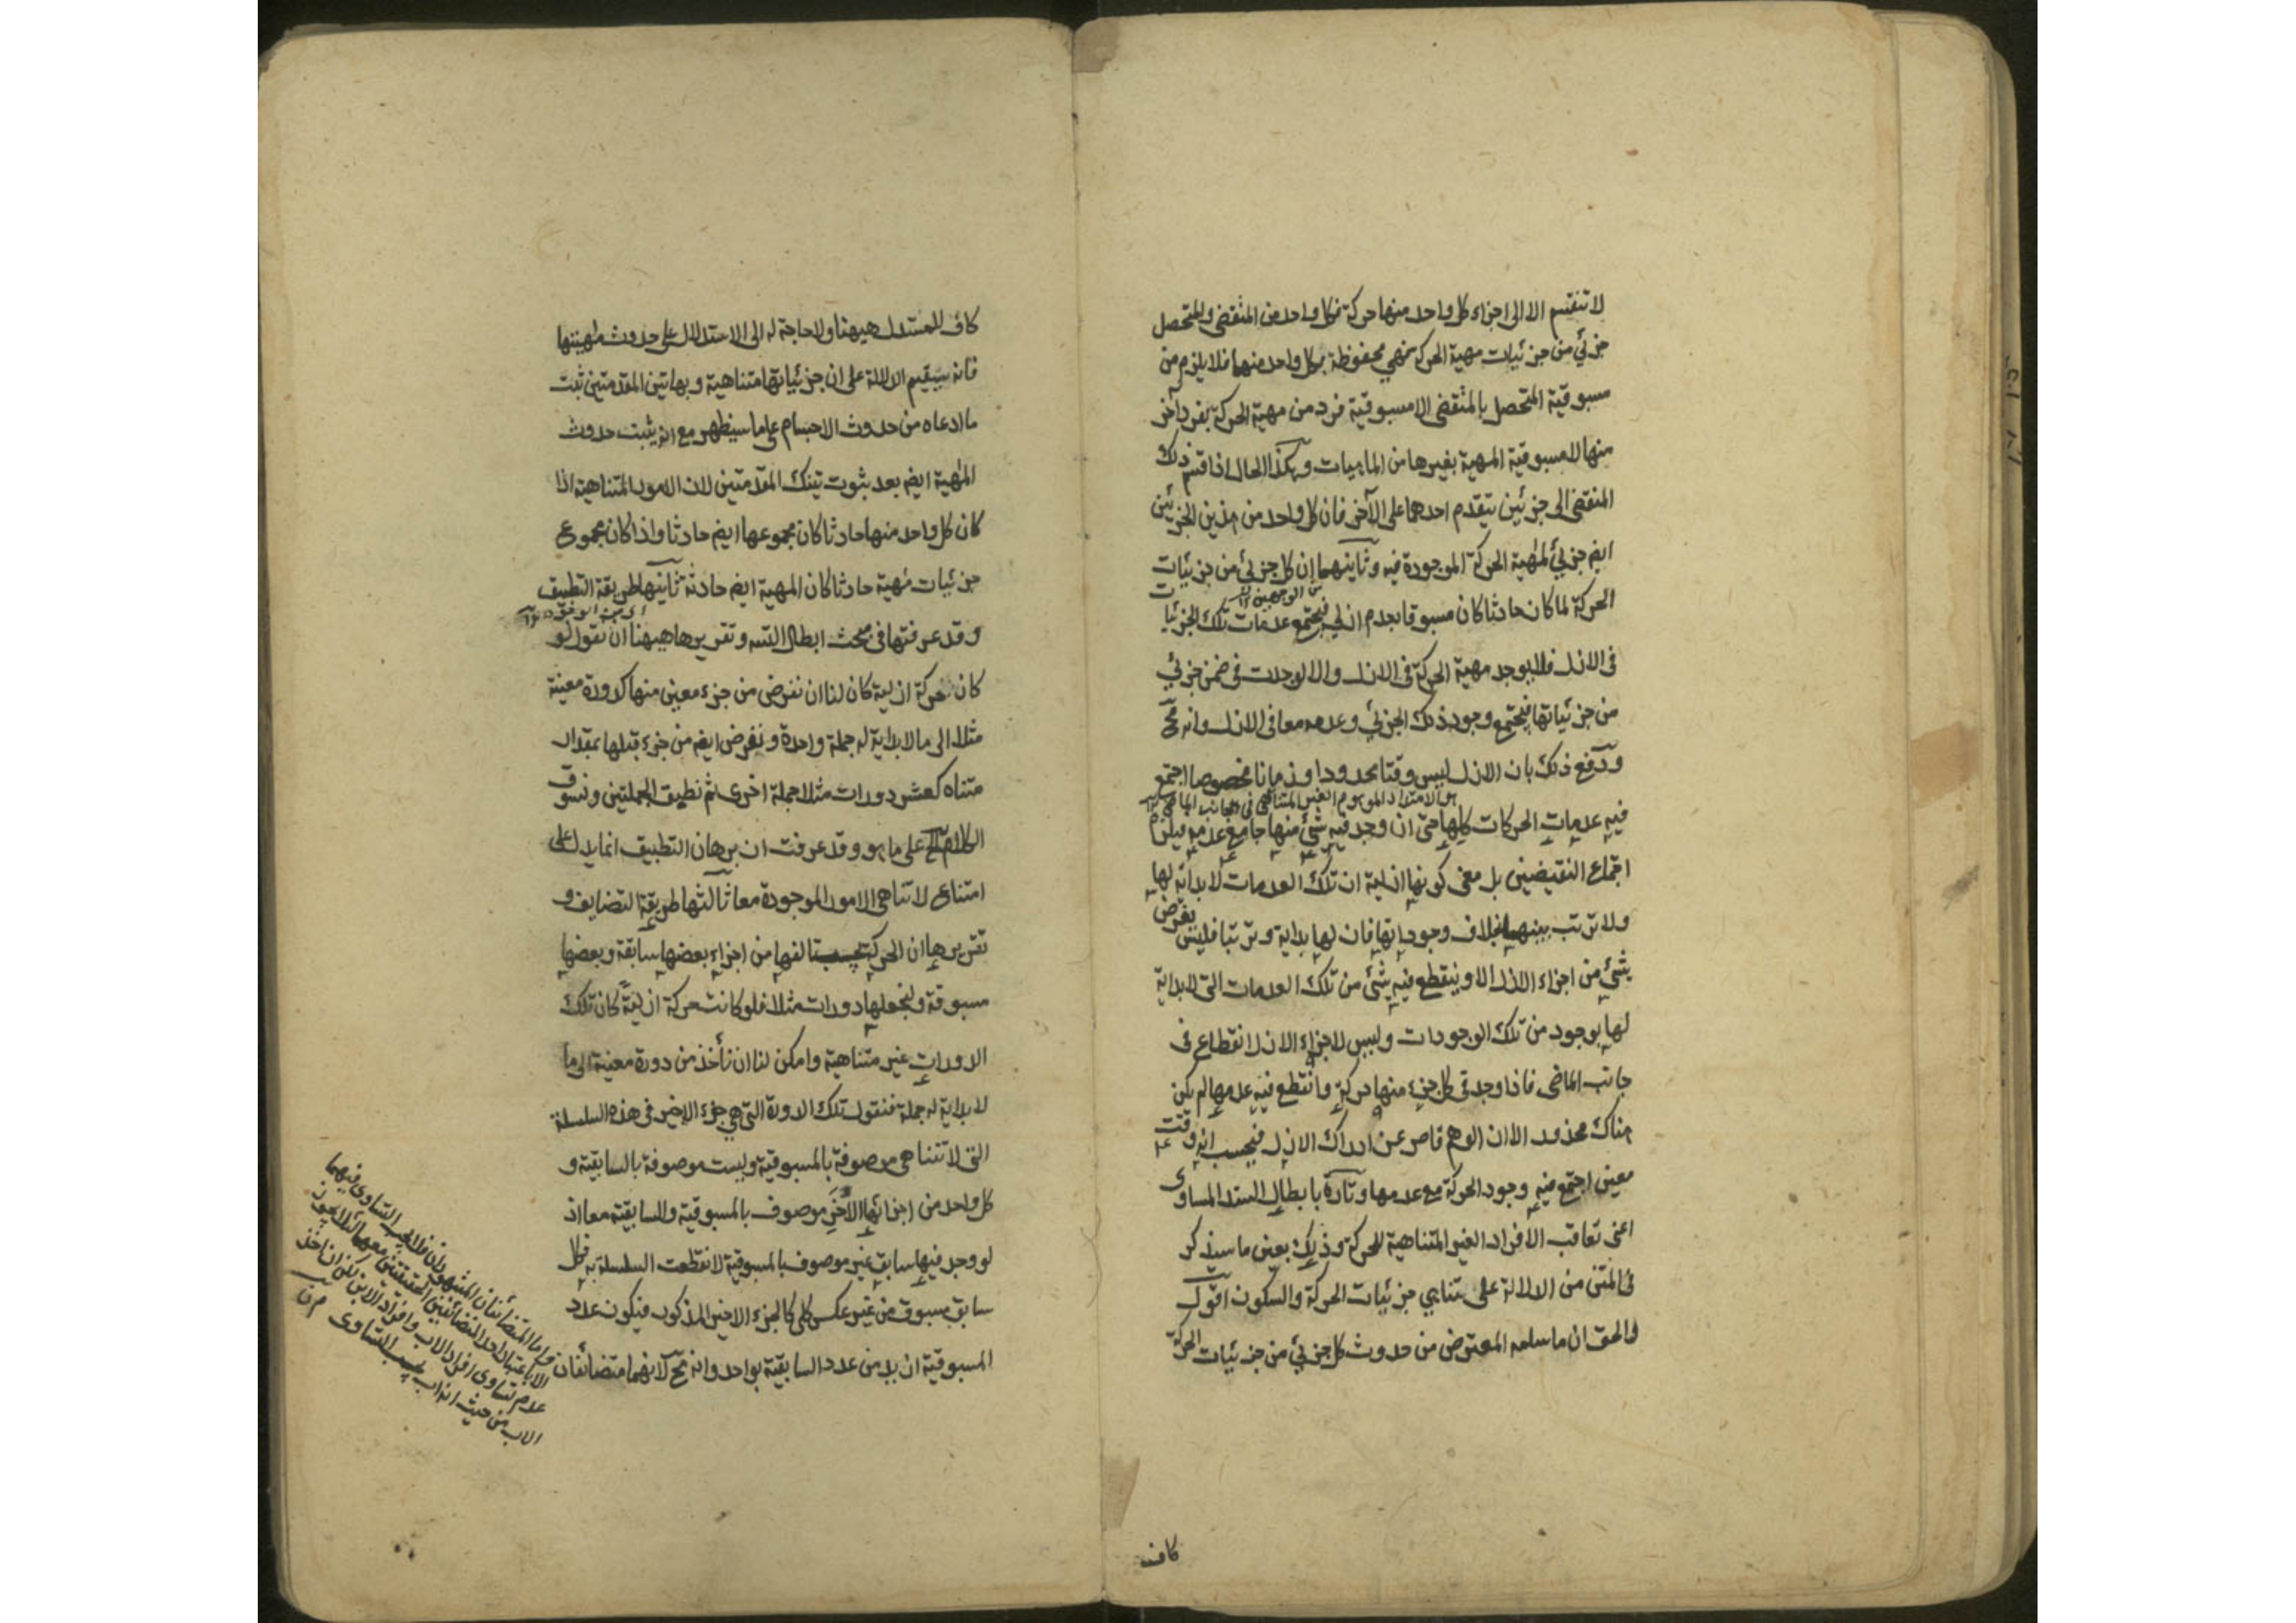 لا تنقسم الا الى اجزاء كل واحد منها حركة فكل واحد من المنقضى والمتحصل
جزئي من جزئيات مهية الحركة فهي محفوظة بكل واحد منهما فلا يلزم من
مسبوقية المتحصل بالمنقضى الا مسبوقية فرد من مهية الحركة بفرد آخر
منها لا مسبوقية المهية بغيرها من الماهيات وهكذا الحال اذا قسم ذلك
المنقضى الى جزئين يتقدم احدهما على الآخر فان كل واحد من هذين الجزئين
ايضم جزئي لمهية الحركة الموجودة فيه وثانيهما ان كل جزئي من جزئيات
من الوجهين
الحركة لما كان حادثا كان مسبوقا بعدم ازلي فيجتمع عدمات تلك الجزئيات
فى الازل فلا يوجد مهية الحركة فى الازل والا لوجدت فى ضمن جزئي
من جزئياتها فيجتمع وجود ذلك الجزئي وعدمه معا فى الازل وانه مح
ودفع ذلك بان الازل ليس وقتا محدودا وزمانا مخصوصا اجتمع
هو الامتداد الموهوم الغير المتناهى فى الجانب الماضى
فيه عدمات الحركات كلها حتى ان وجد فيه شئ منها جامع عدمه فيلزم
اجتماع النقيضين بل معنى كونها ازلية ان تلك العدمات لا بداية لها
ولا ترتب بينهما بخلاف وجوداتها فان لها بداية وترتبا فليس يفرض
شئ من اجزاء الازل الا وينقطع فيه شئ من تلك العدمات التى لا بداية
لها بوجود من تلك الوجودات وليس لاجزاء الازل انقطاع فى
جانب الماضى فاذا وجد فى كل جزء منها حركة وانقطع فيه عدمها لم يكن
هناك محذور الا ان الوهم قاصر عن ادراك الازل فيحسب انه وقت
معين اجتمع فيه وجود الحركة مع عدمها وتارة بابطال السند المساوى
اعنى تعاقب الافراد الغير المتناهية للحركة وذلك بعين ما سيذكر
فى المتن من الدلالة على تناهي جزئيات الحركة والسكون اقول
والحق ان ما سلمه المعترض من حدوث كل جزئي من جزئيات الحركة
كاف
كاف للمستدل هيهنا ولا حاجة له الى الاستدلال على حدوث مهيتها
فانه سيقيم الدلالة على ان جزئياتها متناهية وبهاتين المقدمتين ثبت
ما ادعاه من حدوث الاجسام على ما سيظهر مع انه يثبت حدوث
المهية ايضم بعد ثبوت تينك المقدمتين لان الامور المتناهية اذا
كان كل واحد منها حادثا كان مجموعها ايضم حادثا واذا كان مجموع
جزئيات مهية حادثا كان المهية ايضم حادثة ثانيها طريقة التطبيق
وقد عرفتها فى مبحث ابطال التسه وتقريرها هيهنا ان نقول لو
كان حركة ازلية كان لنا ان نفرض من جزء معين منها كدورة معينة
مثلا الى ما لا بداية له جملة واحدة ونفرض ايضم من جزء قبلها بمقدار
متناه كعشر دورات مثلا جملة اخرى ثم نطبق الجملتين ونسوق
الكلام الخ على ما هو وقد عرفت ان برهان التطبيق انما يدل على
امتناع لا تناهى الامور الموجودة معا ثالثها طريقة التضايف و
تقريرها ان الحركة تالفها من اجزاء بعضها سابقة وبعضها
مسبوقة ولنجعلها دورات مثلا فلو كانت حركة ازلية كان تلك
الدورات غير متناهية وامكن لنا ان ناخذ من دورة معينة الى ما
لا بداية له جملة فنقول تلك الدورة التى هى جزء الاخير فى هذه السلسلة
التى لا تتناهى موصوفة بالمسبوقية وليست موصوفة بالسابقية و
كل واحد من اجزائها الأخر موصوف بالمسبوقية والسابقية معا اذ
لو وجد فيها سابق غير موصوف بالمسبوقية لانقطعت السلسلة به فكل
سابق مسبوق من غير عكس كلى كالجزء الاخير المذكور فيكون عدد
المسبوقية ازيد من عدد السابقية بواحد وانه مح لانهما متضائفان
واما المتضائفان المشهوران فلا يجب التساوى فيهما
الا باعتبار احد المتضائفين الحقيقيين معهما
عدم تساوى افراد الاب وافراد الابن لكن ان اخذ
الاب من حيث انه اب يجب التساوى